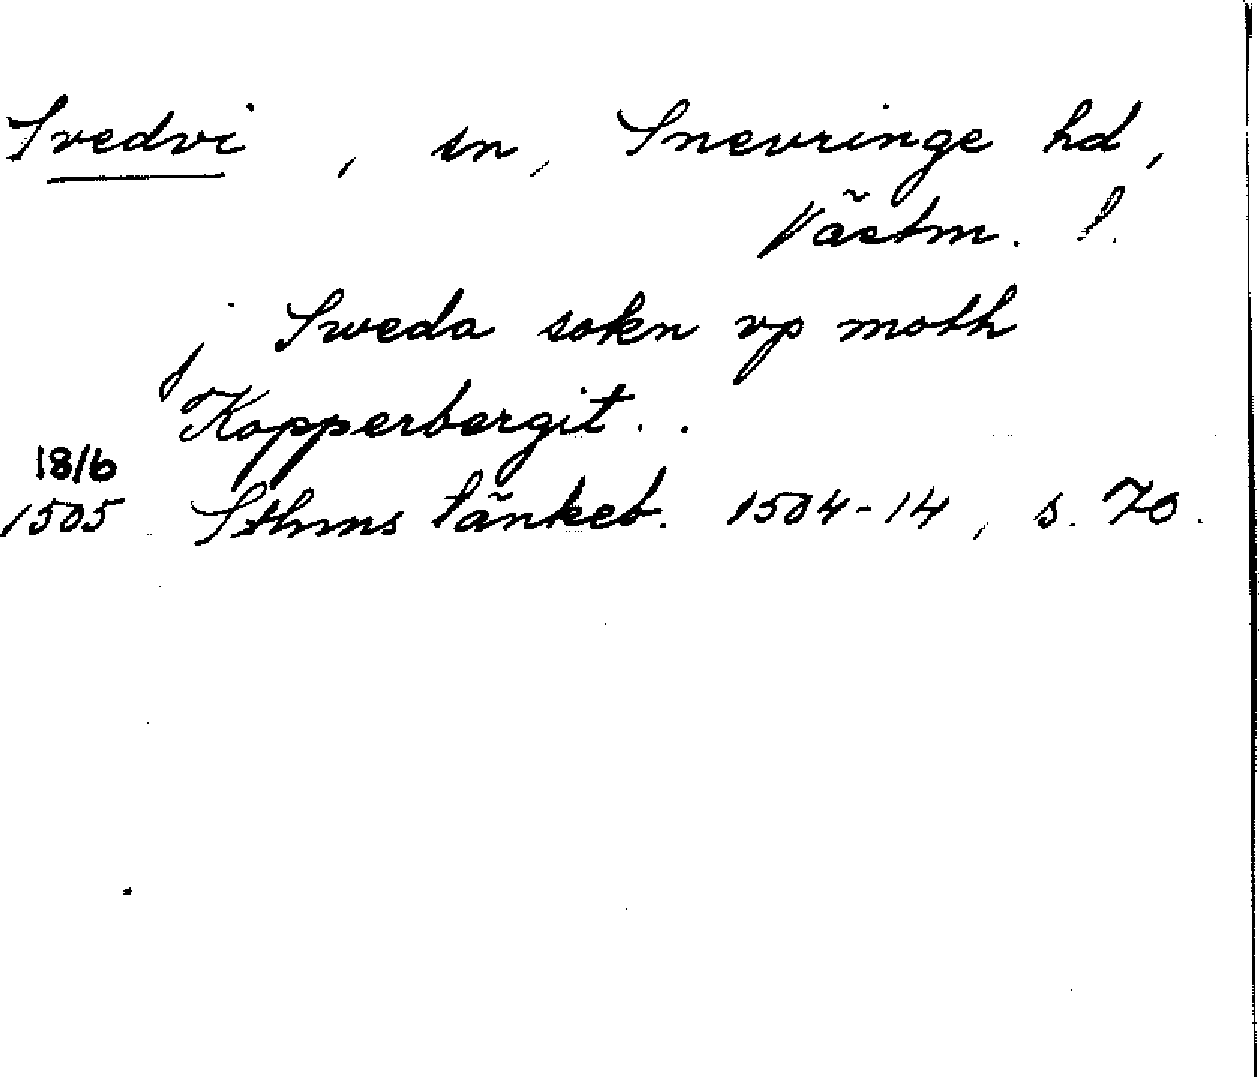 Svedvi, sn, Snevringe hd,
Västm. l.
j Sweda sokn vp moth
Kopperbergit..
18/6
1505 Sthms tänkeb. 1504-14, s. 70.